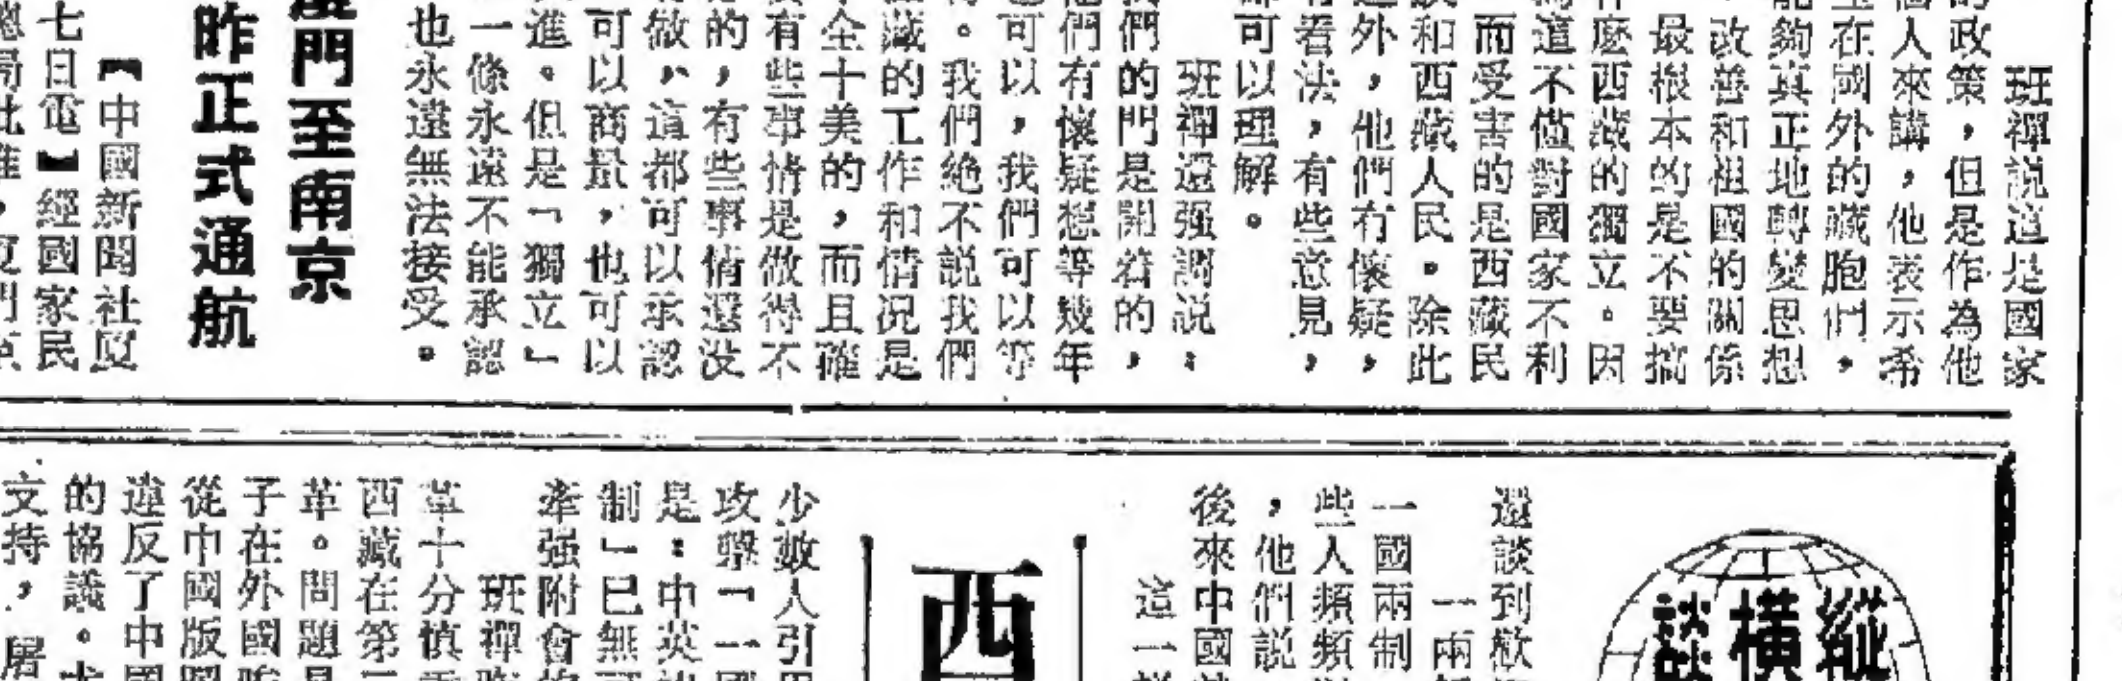 班禪説道是國家
的政策，但是作為他
個人來講，他表示希
在國外的藏胞們，
能夠真正地轉變思想
，改善和祖國的關係
最根本的是不要搞
什麼西藏的獨立。因
為這不僅對國家不利
而受害的是西藏民
族和西藏人民。除此
之外，他們有懷疑，
有看法，有些意見，
都可以理解。
班禪還强調説：
我們的門是開着的，
他們有懷疑想等幾年
也可以，我們可以等
。我們絶不説我們
藏的工作和情况是
十全十美的，而且確
有些事情是做得不
的，有些事情還没
有做，這都可以承認
可以商量，也可以
進。但是「獨立」
一條永遠不能承認
也永遠無法接受。
廈門至南京
昨正式通航
【中國新聞社廈
七日電】經國家民
總局批准，廈門
縱
橫
談
還談到
一兩
一國兩制
些人頻頻
，他們説
後來中國
這一
西
少數人引
攻擊「一國
是：中英
制」已無可
牽强附會
班禪
革十分慎
西藏在第二
革。問題是
子在外國
從中國版圖
違反了中國
的協議。
文持，屠